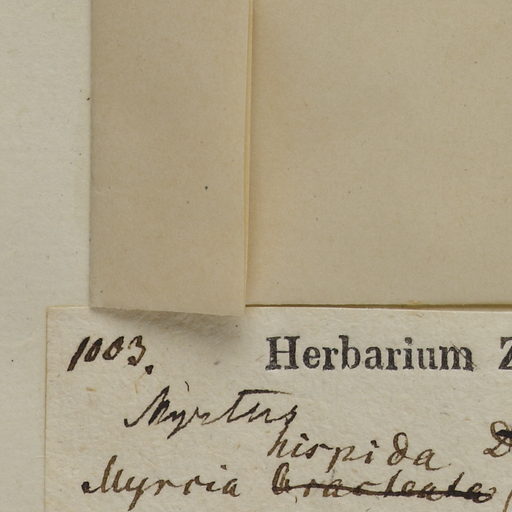 1003. Herbarium Z
Myrtus
hispida D
Myrcia bracteata (